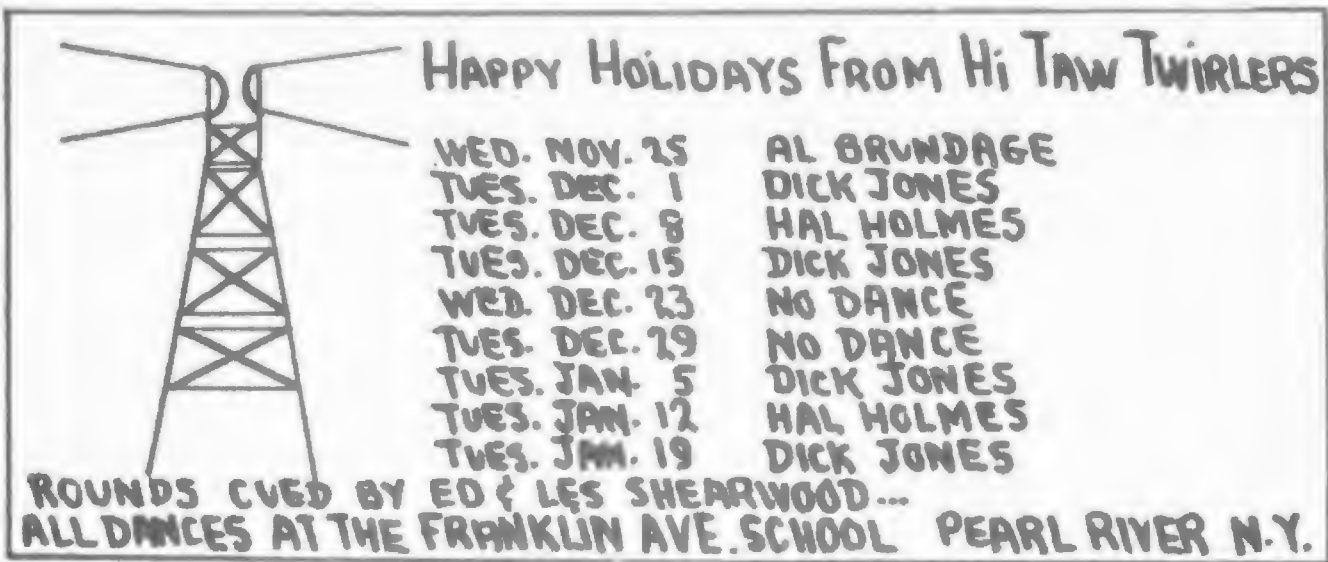 HAPPY HOLIDAYS FROM Hi TAW TWIRLERS
WED. NOV. 25 AL BRUNDAGE
TUES. DEC. 1 DICK JONES
TUES. DEC. 8 HAL HOLMES
TUES. DEC. 15 DICK JONES
WED. DEC. 23 NO DANCE
TUES. DEC. 29 NO DANCE
TUES. JAN. 5 DICK JONES
TUES. JAN. 12 HAL HOLMES
TUES. JAN. 19 DICK JONES
ROUNDS CUED BY ED & LES SHEARWOOD...
ALL DANCES AT THE FRANKLIN AVE. SCHOOL PEARL RIVER N.Y.